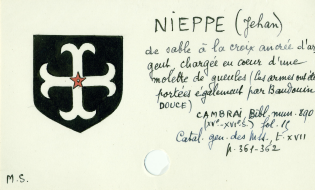 NIEPPE (Jehan)
de sable à la croix ancrée d'ar
gent, chargée en cœur d'une
molette de gueules (les armes ont été
portées également par Baudouin
DOUCE)
CAMBRAI, Bibl. mun. 890
(XVe-XVIe s.) fol. 15
Catal. gen. des Mss, t. XVII
p. 361-362
M.S.